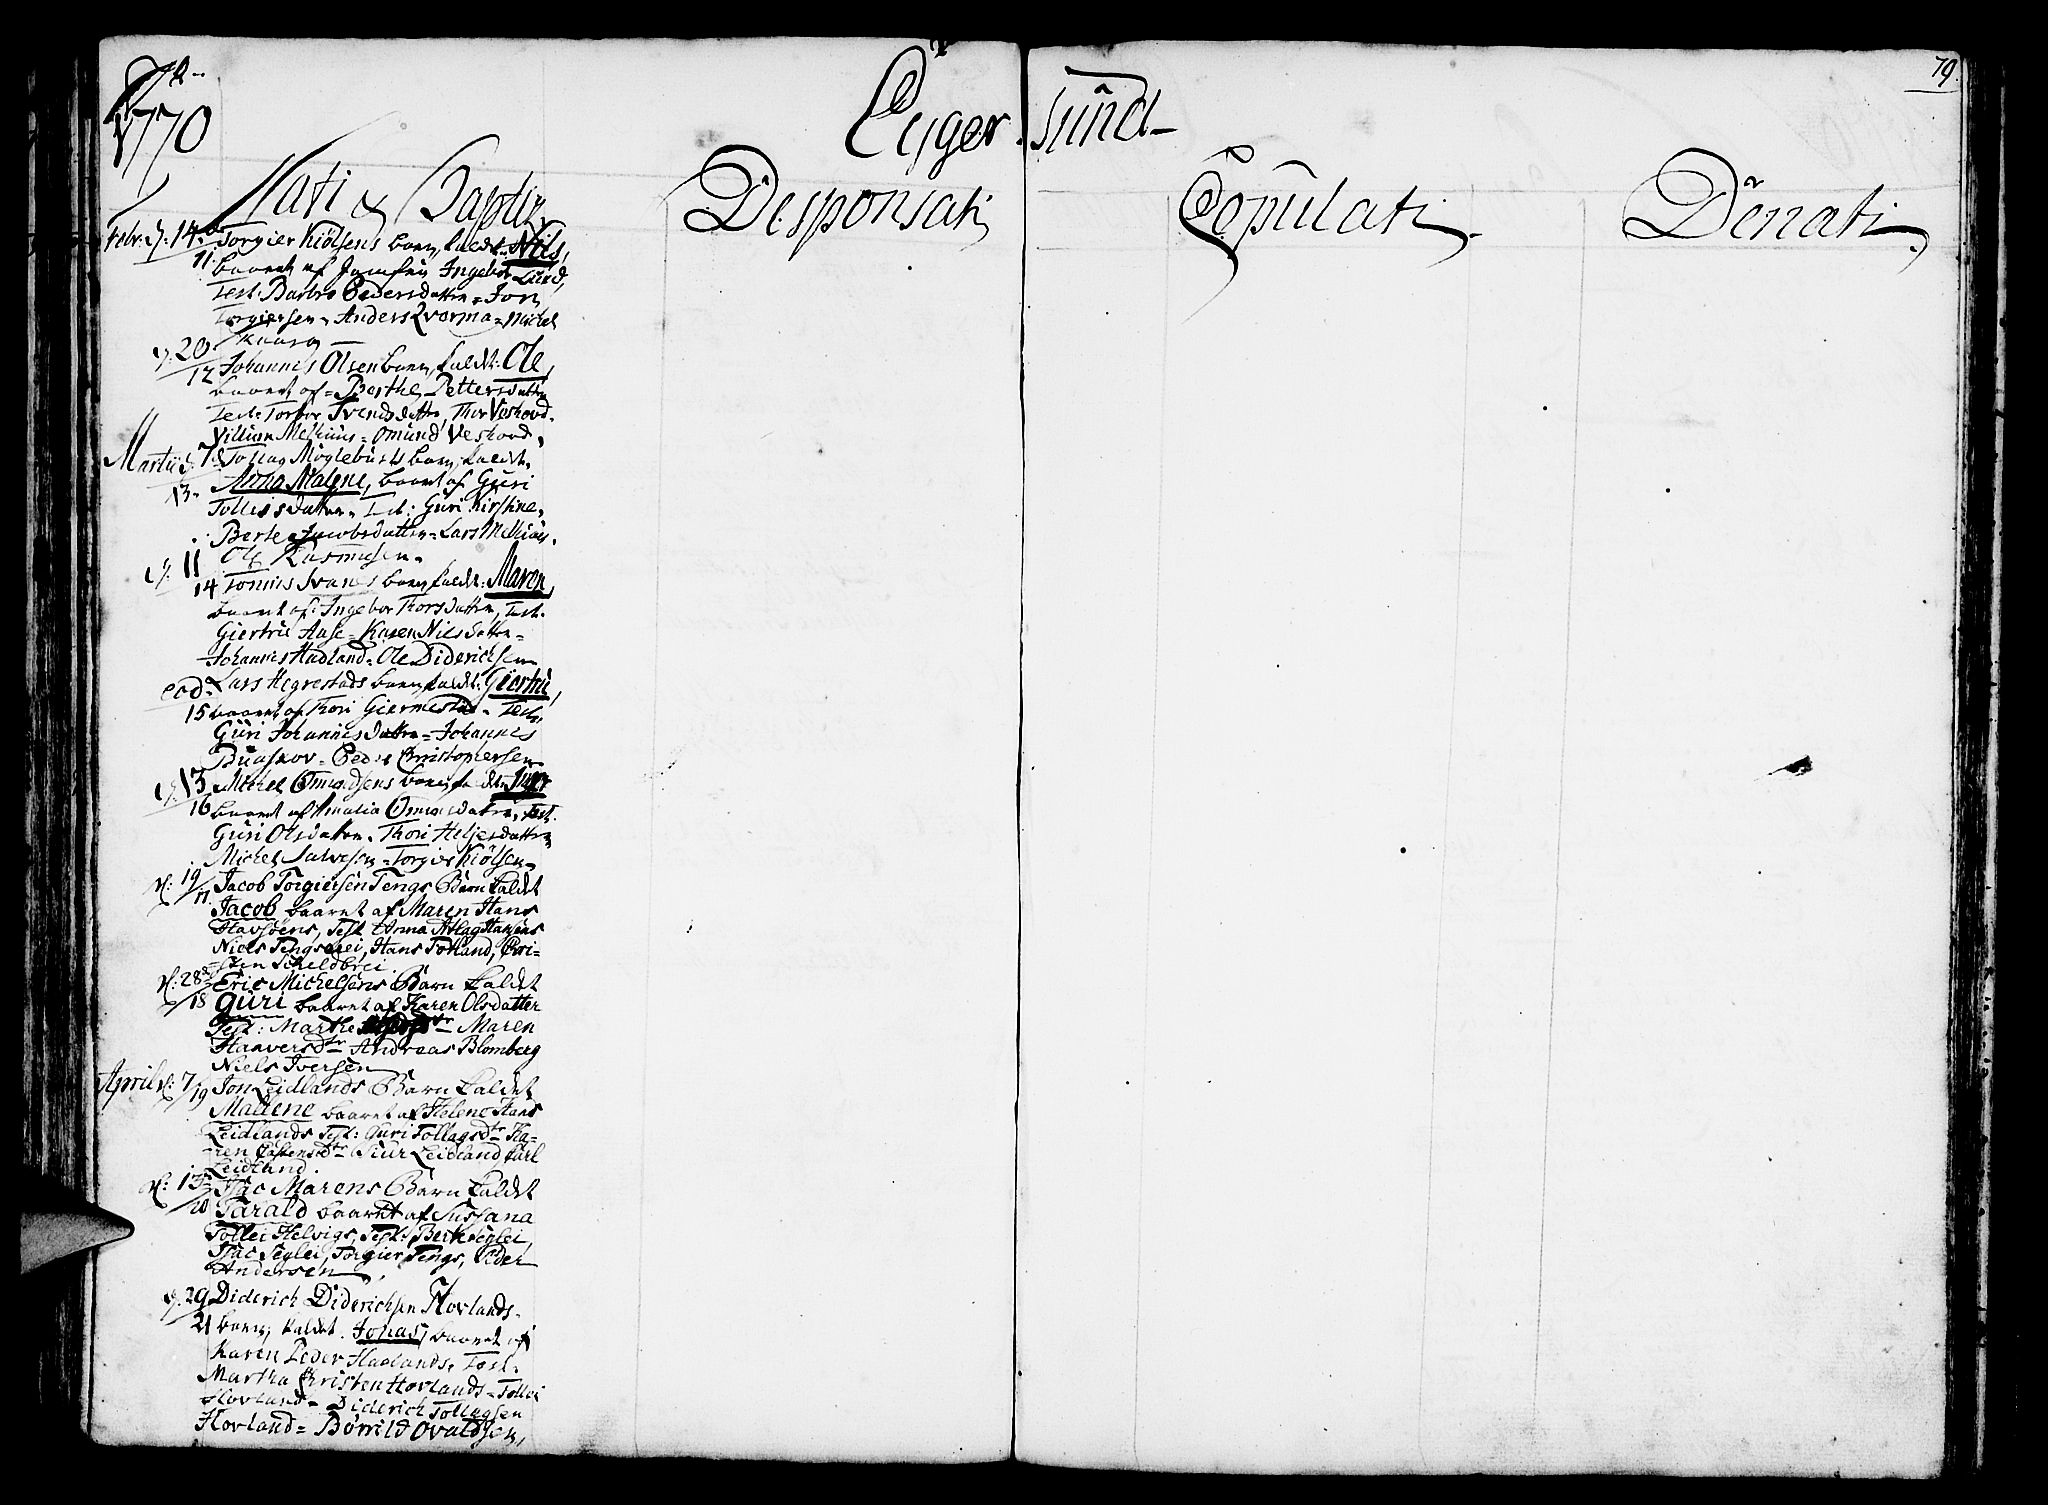 1770
Eyger sund
79.
Nati & Baptiz.
Desponsati
Copulati
Denati
Febr: d: 14. Torgier Kiölsens barn, kaldt Nils,
11. baaret af Ingebor Lund,
Test: Barbro Pedersdatter, Jon
Torgiersen, Anders Qvorma, Michel
d: 20 Johannis Olsens barn, kaldt: Ole,
12 baaret af Berthe Pettersdatter
Test: Torbor Svendsdatter, Thor Veshovd
Villum Melhuus, Omund Veshovd,
Martii d: 7 Tollag Möglebusts barn, kaldt,
13. Anna Malene, baaret af Guri
Tollissdatter, Test: Guri Kirstine,
Berte Jacobsdatter, Lars Melhuus,
Ole Rasmusen
d: 11
14 Tonnis Svanes barn, kaldt: Maren,
baaret af: Ingebor Thorsdatter, Test.
Giertru Aase, Karen Nilsdatter
Johannes Hadland, Ole Diderichsen
eod. Lars Hegrestads barn, kaldt: Giertru,
15 baaret af Thori Giermestad, Test,
Guri Johannisdatter, Johannes
Puaskov, Peder Christophersen
d: 13 Michel Omundsens barn, kaldt
16 baaret af Amalia Omunsdatter, Test.
Guri Olsdatter, Thori Heljesdatter
Michel Salvesen, Torgier Kiölsen
d: 19 Jacob Torgiersen Tengs Barn kaldet
17. Jacob baaret af Maren Hans
Havsöens, Test Anna Atlag Hansens
Niels Tengsarei, Hans Totland, Chri-
sten Skeldbrei
d: 28 Eric Michelsens Barn kaldet
18 Guri baaret af Karen Olsdatter
Test: Marthe Maren
Hanversdtr Andreas Blomberg
Niels Iversen
April d: 7 Jon Leidlands Barn kaldet
19 Mallene baaret af Helene Hans
Leidlands Test: Guri Tollagsdtr Ka-
ren Castensdtr Siur Leidland Carl
Leidland
d: 13 Isac Marens Barn kaldet
20 Tarald baaret af Sussana
Tollei Helvigs, Test: Berte Seglei,
Isac Seglei, Torgier Tengs, Peder
Andersen
d. 29 Diderich Diderichsen Hovlands
21 barn, kaldet. Jonas, baaret af
Karen Peder Haalands, Test.
Martha Christen Hovlands, Tollei
Hovland, Diderich Tollagsen
Hovland, Börrild Ovaldsen,